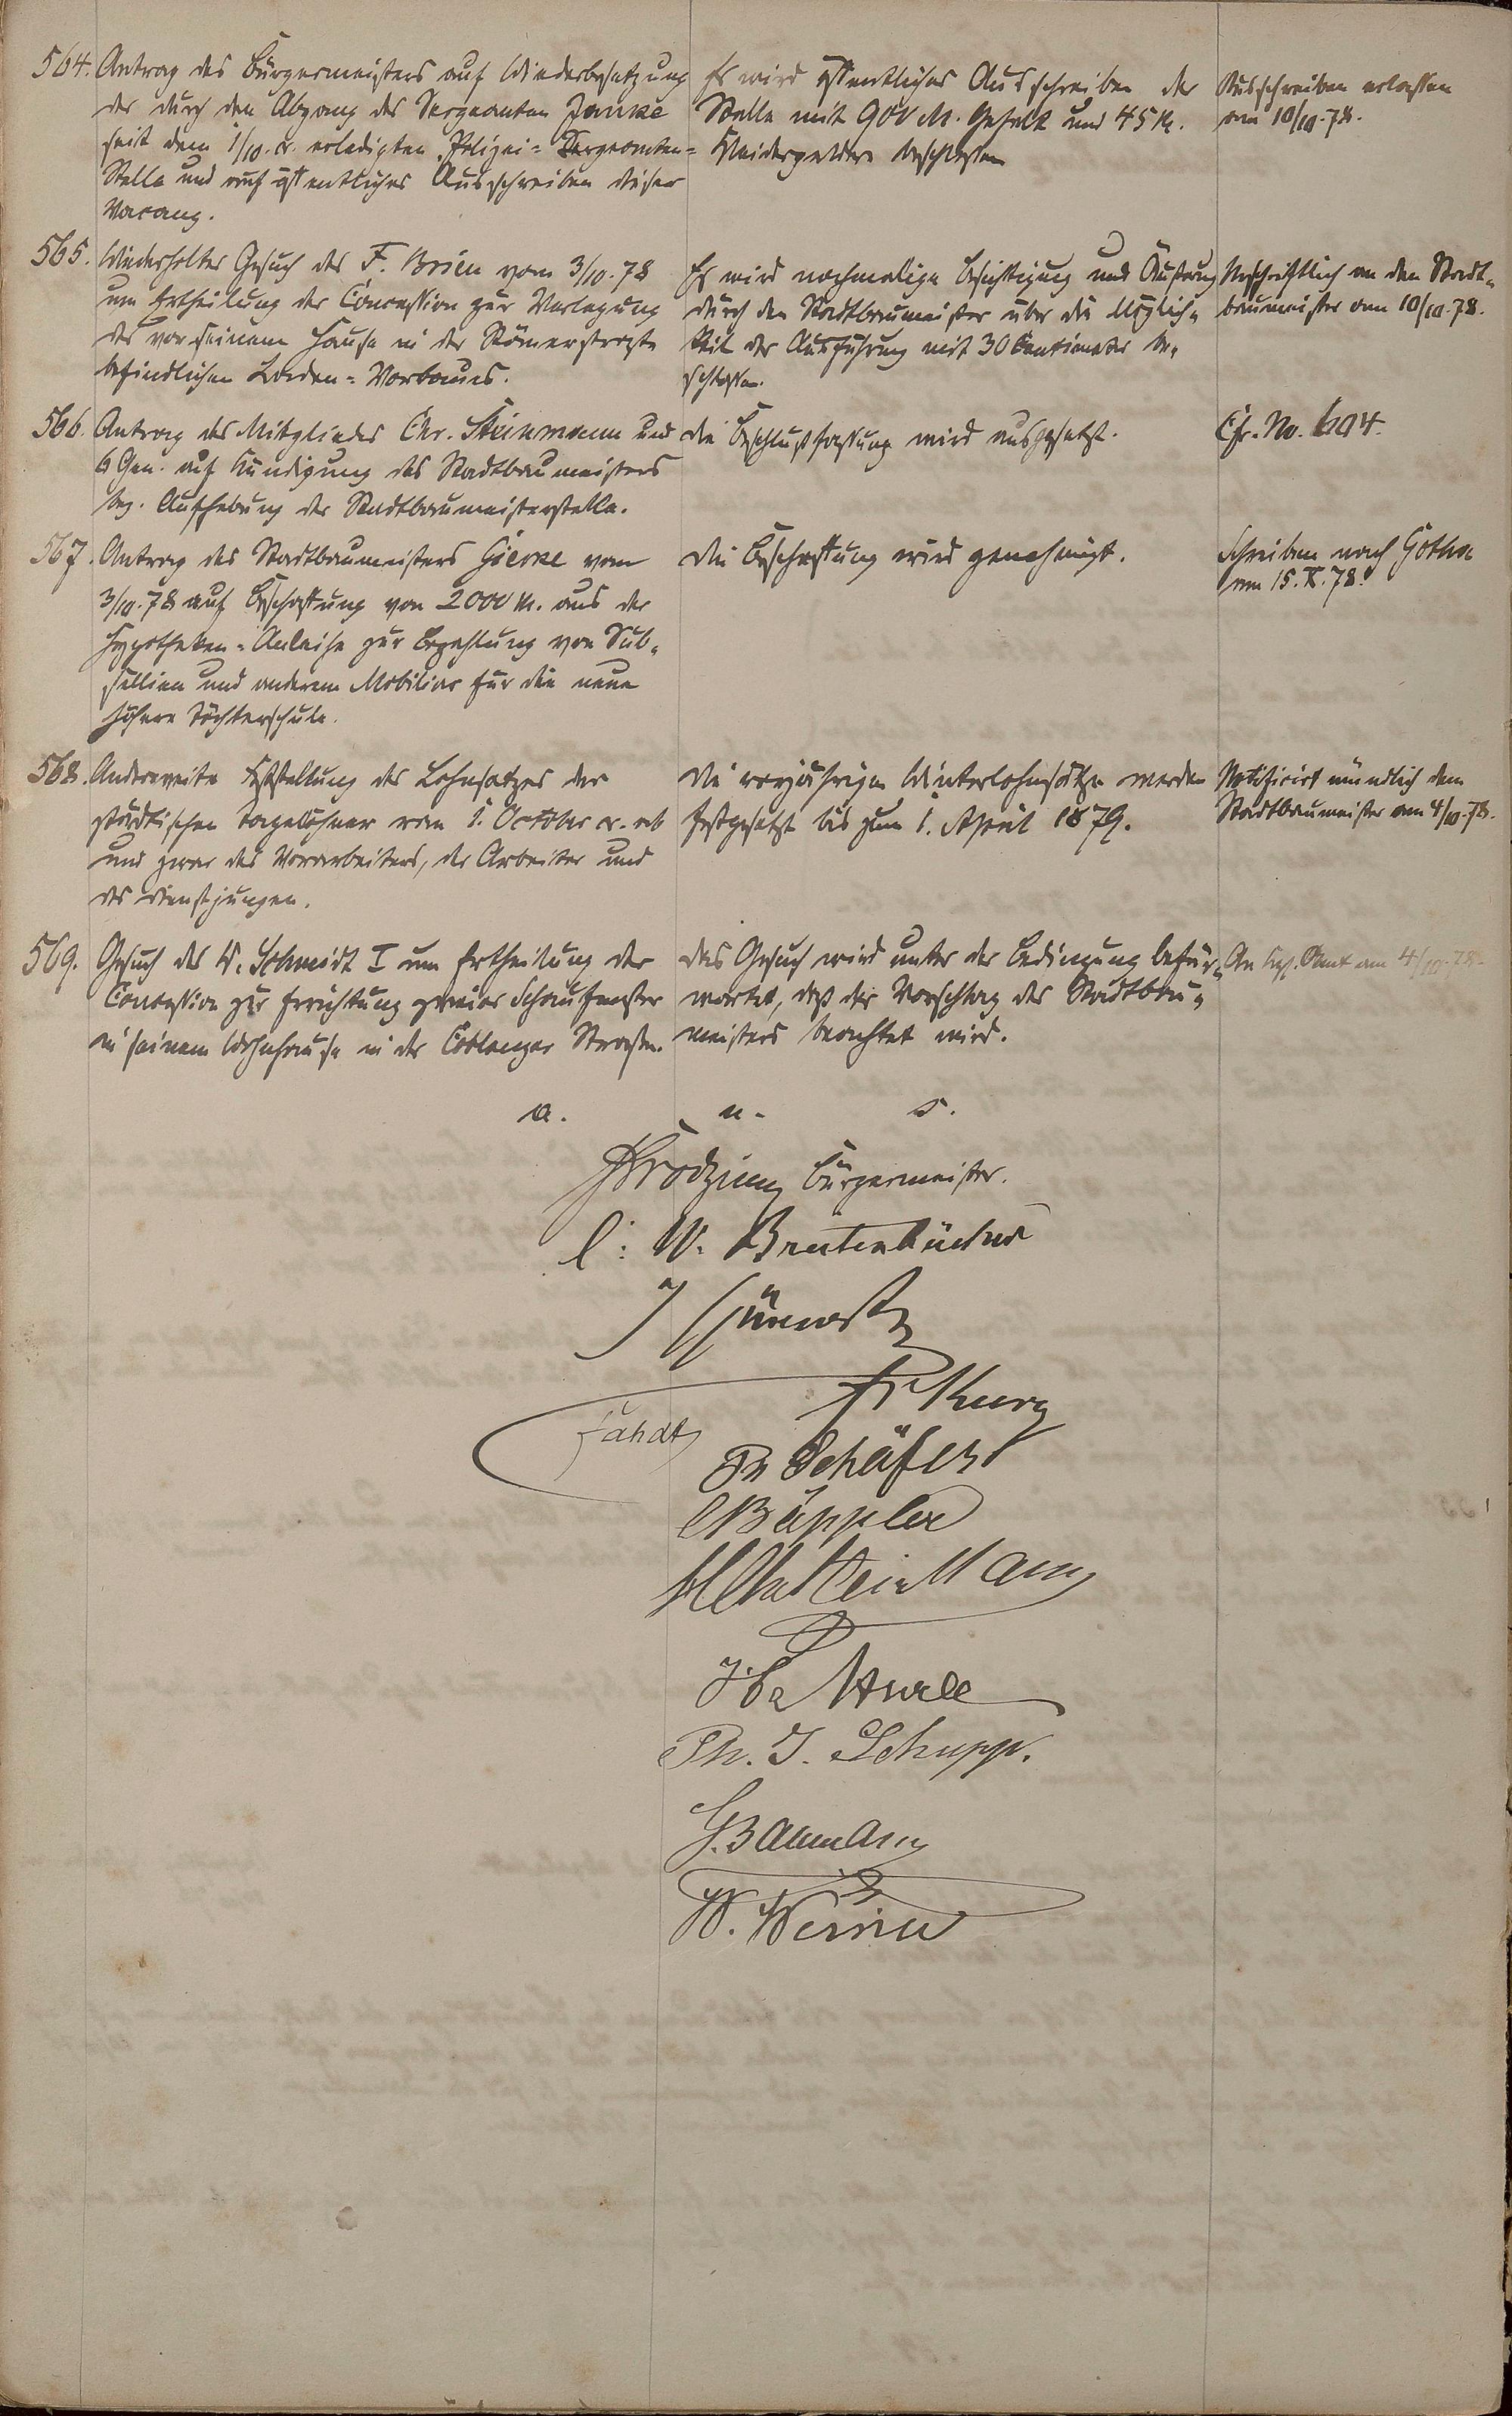 564. Antrag des Bürgermeisters auf Wiederbesetzung
der durch den Abgang des Sergeanten Janke
seit dem 1/10. cr. erledigten Polizei-Sergeanten-
Stelle und auf öffentliches Ausschreiben dieser
Vacanz.
Es wird öffentliches Ausschreiben der
Stelle mit 900 M. Gehalt und 45 M.
Kleidergelder beschlossen
Ausschreiben erlassen
am 10/10.78.
565. Wiederholtes Gesuch des F. Brien vom 3/10.78
um Ertheilung der Concession zur Verlegung
des vor seinem Hause in der Römerstraße
befindlichen Laden-Vorbaues.
Es wird nochmalige Besichtigung und Äußerung
durch den Stadtbaumeister über die Möglich-
keit der Ausführung mit 30 Centimeter be-
schlossen.
Abschriftlich an den Stadt-
baumeister am 10/10.78.
566. Antrag des Mitgliedes Chr. Steinmann und
6 Gen. auf Kündigung des Stadtbaumeisters
bez. Aufhebung der Stadtbaumeisterstelle.
Die Beschlußfassung wird ausgesetzt.
Cfr. No. 604.
567. Antrag des Stadtbaumeisters Gierke vom
3/10.78 auf Beschaffung von 2000 M. aus der
Hypotheken-Anleihe zur Bezahlung von Sub-
sellien und anderem Mobiliar für die neue
höhere Töchterschule.
Die Beschaffung wird genehmigt.
Schreiben nach Gotha
am 15.X.78.
568. Anderweite Feststellung des Lohnsatzes der
städtischen Tagelöhner vom 1. October cr. ab
und zwar des Vorarbeiters, der Arbeiter und
des Dienstjungen.
Die vorjährigen Winterlohnsätze werden
festgesetzt bis zum 1. April 1879.
Notificirt mündlich dem
Stadtbaumeister am 4/10.78.
569. Gesuch des W. Schmidt I um Ertheilung der
Concession zur Errichtung zweier Schaufenster
in seinem Wohnhause in der Coblenzer Straße.
Das Gesuch wird unter der Bedingung befür-
wortet, daß der Vorschlag des Stadtbau-
meisters beachtet wird.
An Kgl. Amt am 4/10.78
a. u. s.
Bürgermeister.
W. Breitenbücher
Fr Kurz
Jahdt
Ph Schäfer
C Bäppler
H Chr Steinmann
Ph. J. Schupp.
G. Baumann
W. Werner